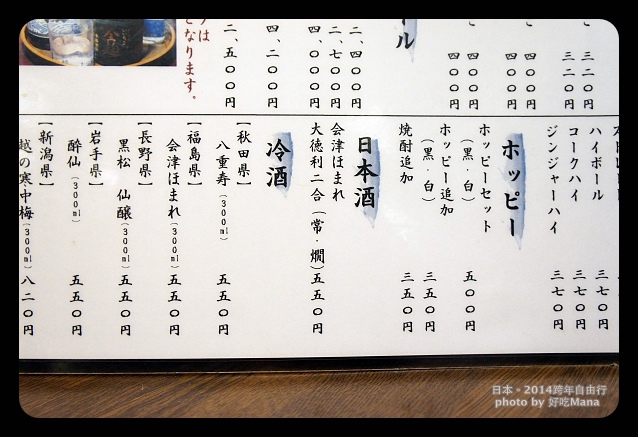 三二〇円
三二〇円
四〇〇円
四〇〇円
四〇〇円
四〇〇円
ル
二、四〇〇円
二、七〇〇円
四、〇〇〇円
四、二〇〇円
二、五〇〇円
は
となります。
ハイボール 三七〇円
コークハイ 三七〇円
ジンジャーハイ 三七〇円
ホッピー
ホッピーセット
(黒・白) 五〇〇円
ホッピー追加
(黒・白) 三五〇円
焼酎追加 三五〇円
日本酒
会津ほまれ
大徳利二合(常・燗)五五〇円
冷酒
【秋田県】
八重寿(300ml) 五五〇円
【福島県】
会津ほまれ(300ml)五五〇円
【長野県】
黒松 仙醸(300ml)五五〇円
【岩手県】
酔仙(300ml) 五五〇円
【新潟県】
越の寒中梅(300ml)八二〇円
日本。2014跨年自由行
photo by 好吃Mana